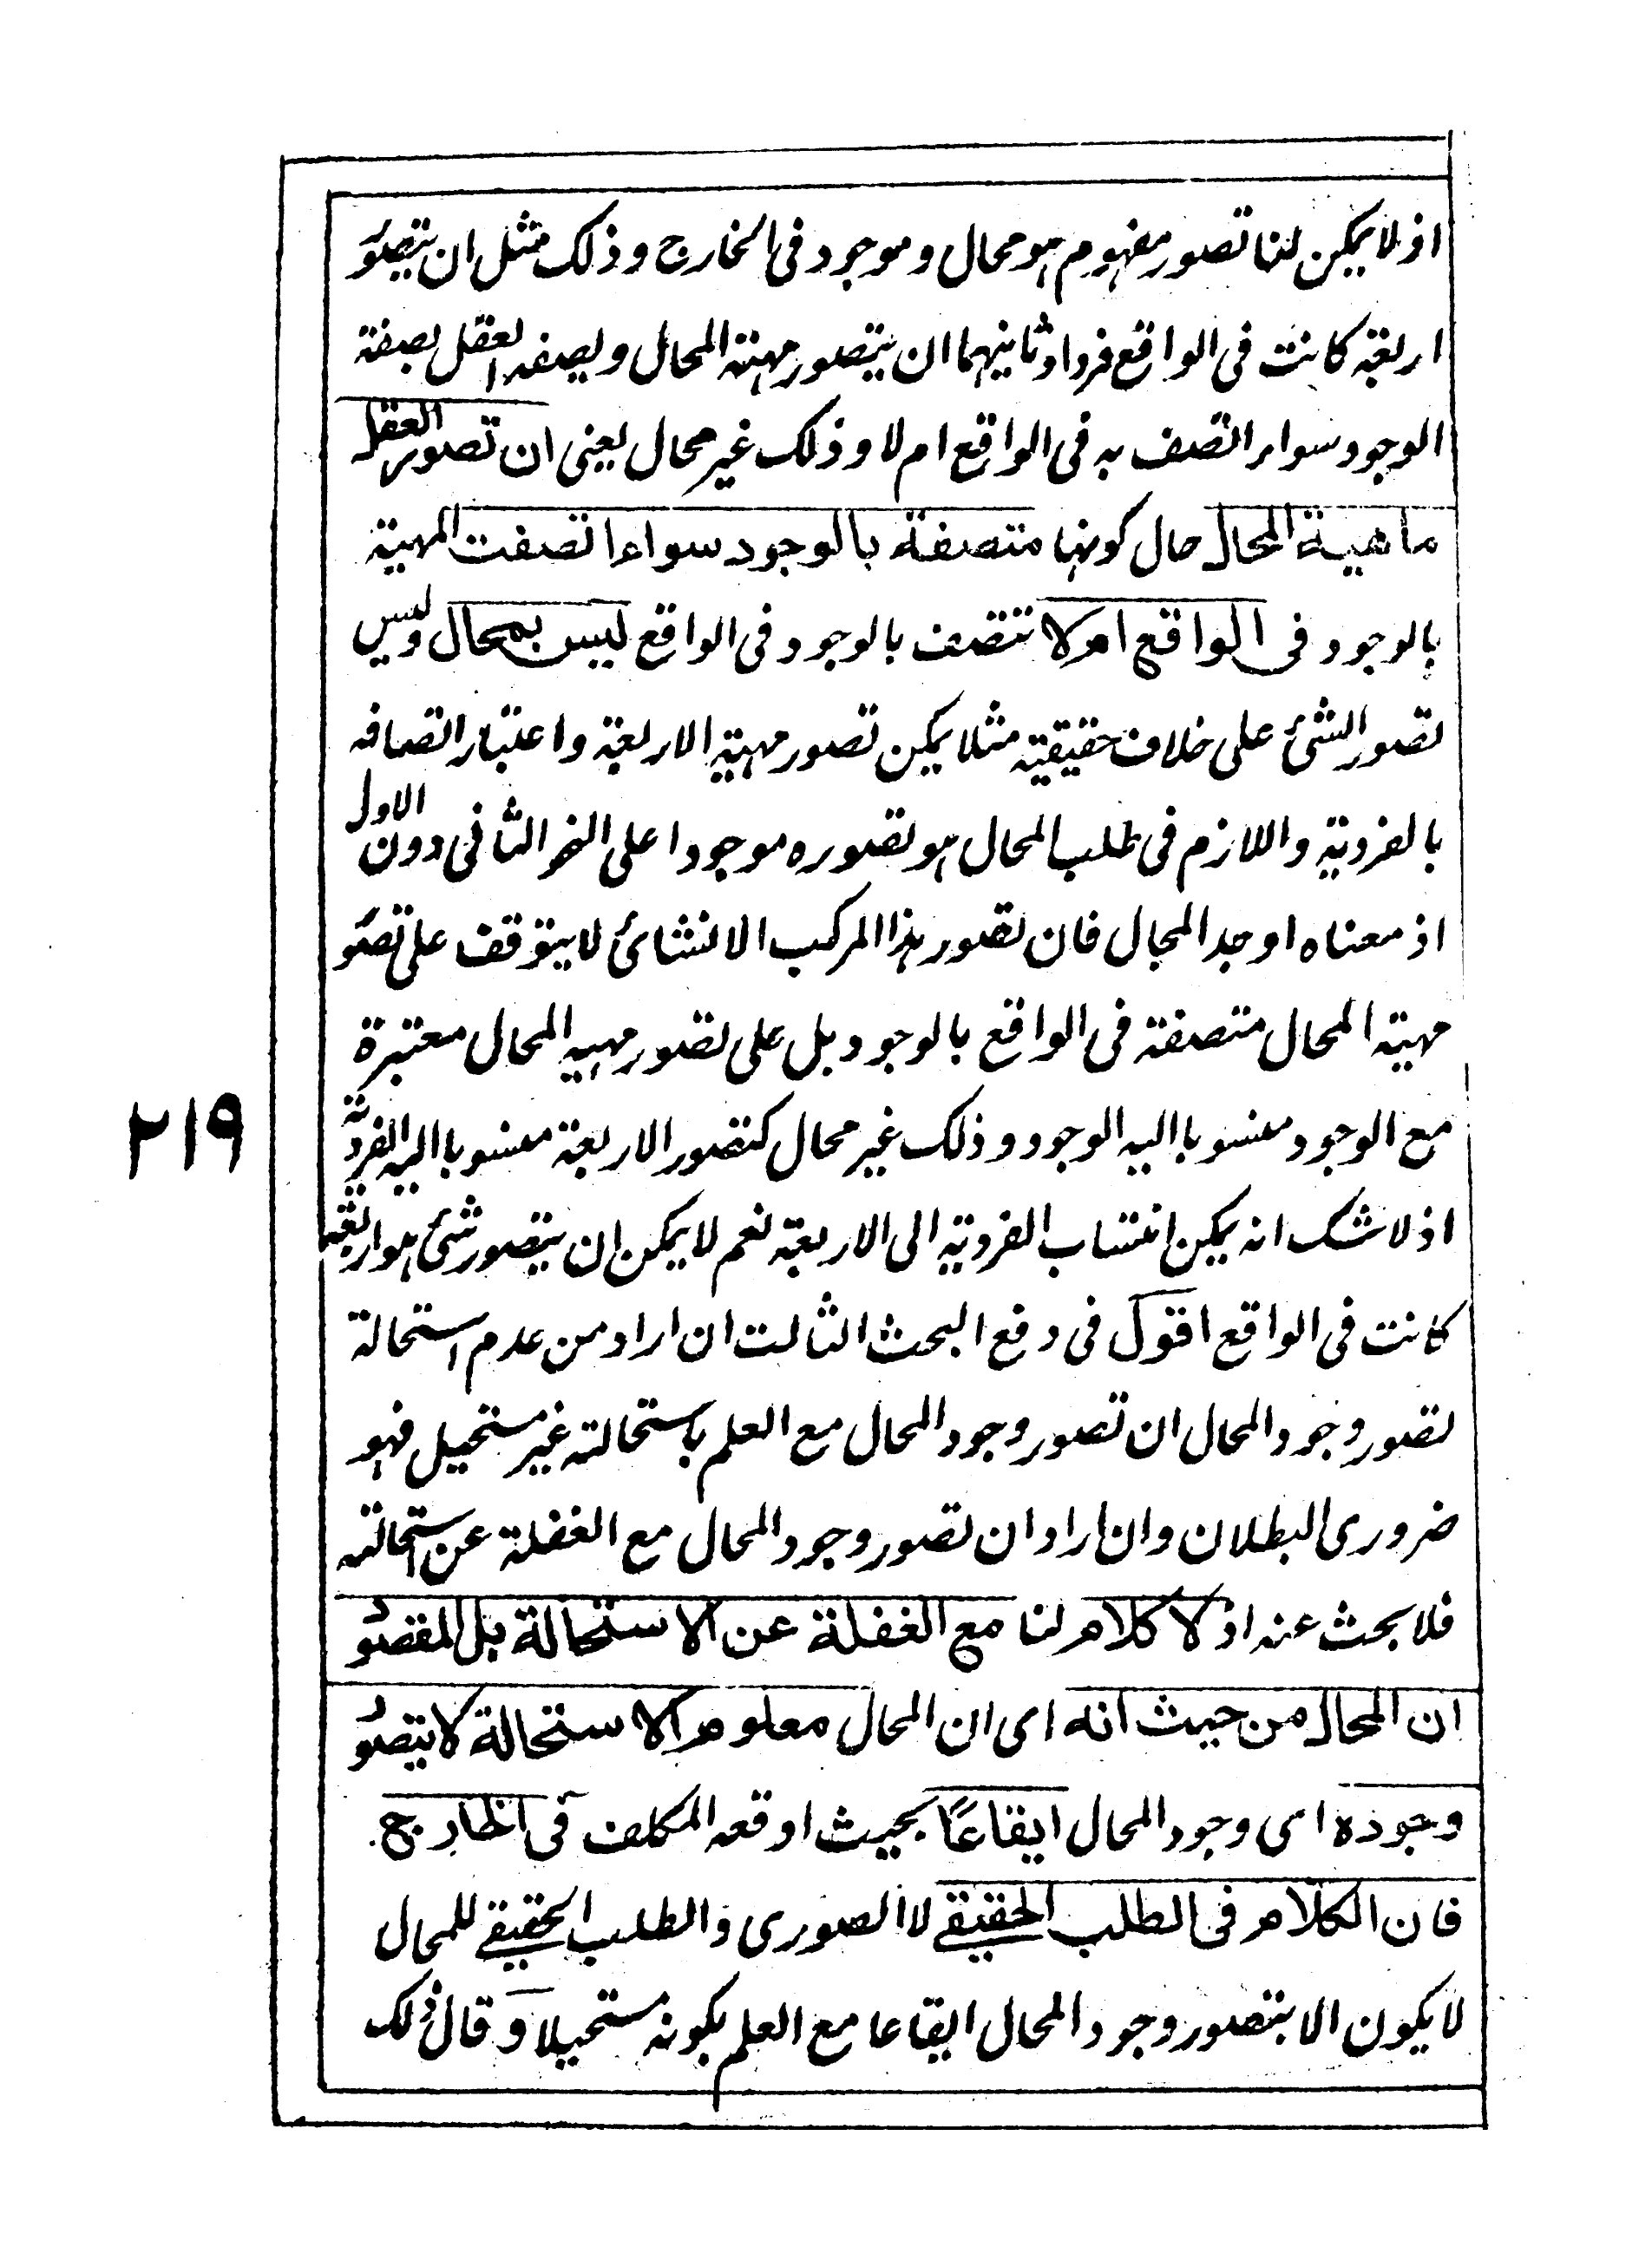 اذ لا يمكن لنا تصور مفهوم هو محال و موجود فى الخارج و ذلك مثل ان يتصور
اربعة كانت فى الواقع فردا وثانيهما ان يتصور مهية المحال ويصفه العقل بصفة
الوجود سواء اتصف به فى الواقع ام لا و ذلك غير محال يعنى ان تصور العقل
ماهية المحال حال كونها متصفة بالوجود سواءا تصفت المهية
بالوجود فى الواقع ام لا تتصف بالوجود فى الواقع ليس بمحال وليس
تصور الشئ على خلاف حقيقته مثلا يمكن تصور مهية الاربعة واعتبار اتصافه
بالفردية واللازم فى طلب المحال هو تصوره موجودا على النحو الثانى دون الاول
اذ معناه اوجد المحال فان تصور هذا المركب الانشائ لا يتوقف على تصو
مهية المحال متصفة فى الواقع بالوجود بل على تصور مهية المحال معتبرة
مع الوجود منسوبا اليه الوجود و ذلك غير محال كتصور الاربعة منسوبا اليه الفردية
اذ لا شك انه يمكن انتساب الفردية الى الاربعة نعم لا يمكن ان يتصور شئ هو اربعة
كانت فى الواقع اقول فى دفع البحث الثالث ان اراد من عدم استحالة
تصور وجود المحال ان تصور وجود المحال مع العلم باستحالته غير مستحيل فهو
ضرورى البطلان وان اراد ان تصور وجود المحال مع الغفلة عن استحالته
فلا بحث عنه اذ لا كلام لنا مع الغفلة عن الاستحالة بل المقصو
ان المحال من حيث انه اى ان المحال معلوم الاستحالة لا يتصو
وجوده اى وجود المحال ايقاعًا بحيث اوقعه المكلف فى الخارج
فان الكلام فى الطلب الحقيقے لا الصورى و الطلب الحقيقے للمحال
لا يكون الا بتصور وجود المحال ايقاعا مع العلم بكونه مستحيلا و قال ذلك
٢١٩